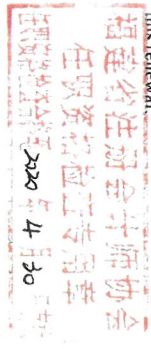 this renewal.
福建省注册会计师协会
任职资格检查专用章
2020年4月30日